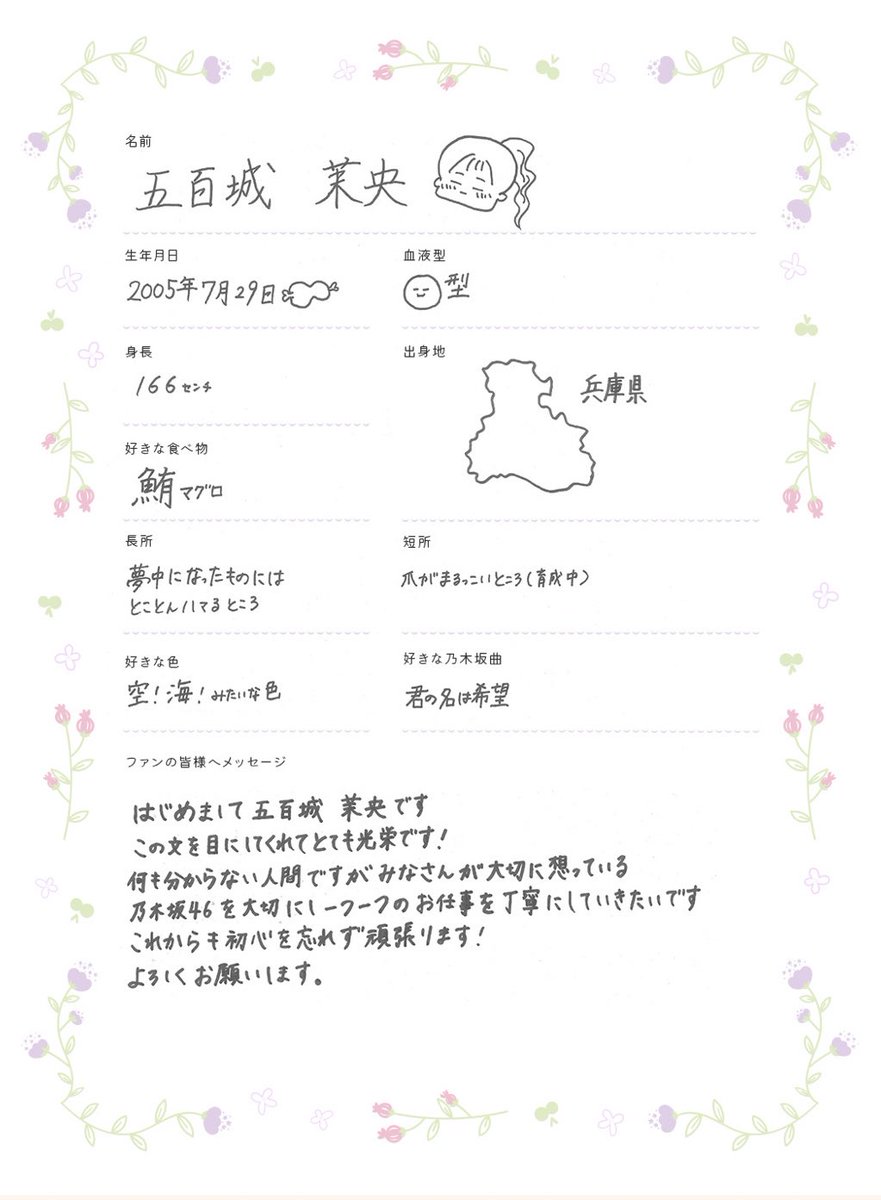 名前
五百城 茉央
生年月日
2005年7月29日
血液型
O型
身長
166センチ
出身地
兵庫県
好きな食べ物
鮪マグロ
長所
夢中になったものには
とことんハマるところ
短所
爪がまるっこいところ(育成中)
好きな色
空!海!みたいな色
好きな乃木坂曲
君の名は希望
ファンの皆様へメッセージ
はじめまして五百城 茉央です
この文を目にしてくれてとても光栄です!
何も分からない人間ですがみなさんが大切に想っている
乃木坂46を大切に一つ一つのお仕事を丁寧にしていきたいです
これからも初心を忘れず頑張ります!
よろしくお願いします。